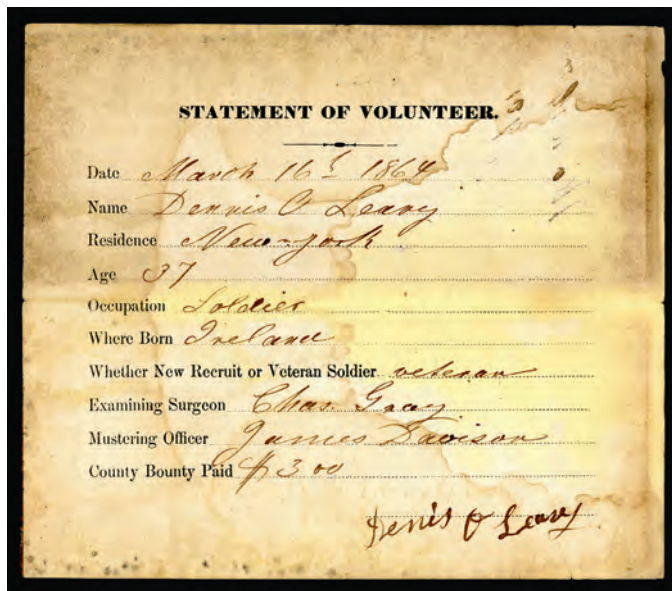 STATEMENT OF VOLUNTEER.
Date March 16th 1864
Name Dennis O Leary
Residence New-york
Age 37
Occupation Soldier
Where Born Ireland
Whether New Recruit or Veteran Soldier veteran
Examining Surgeon Chas. Gray
Mustering Officer James Davison
County Bounty Paid $300
Denis O Leary